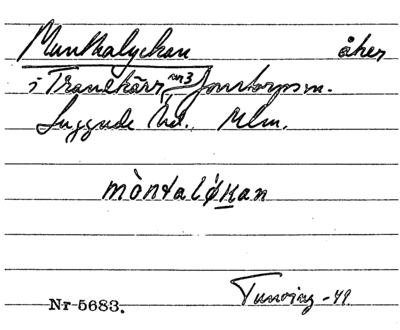 Munthalyckan åker
i Tranekärr nr 3 Jonstorps sn.
Luggude hd. Mlm.
mòntalø̀kan
Tuneving -49.
Nr 5683.